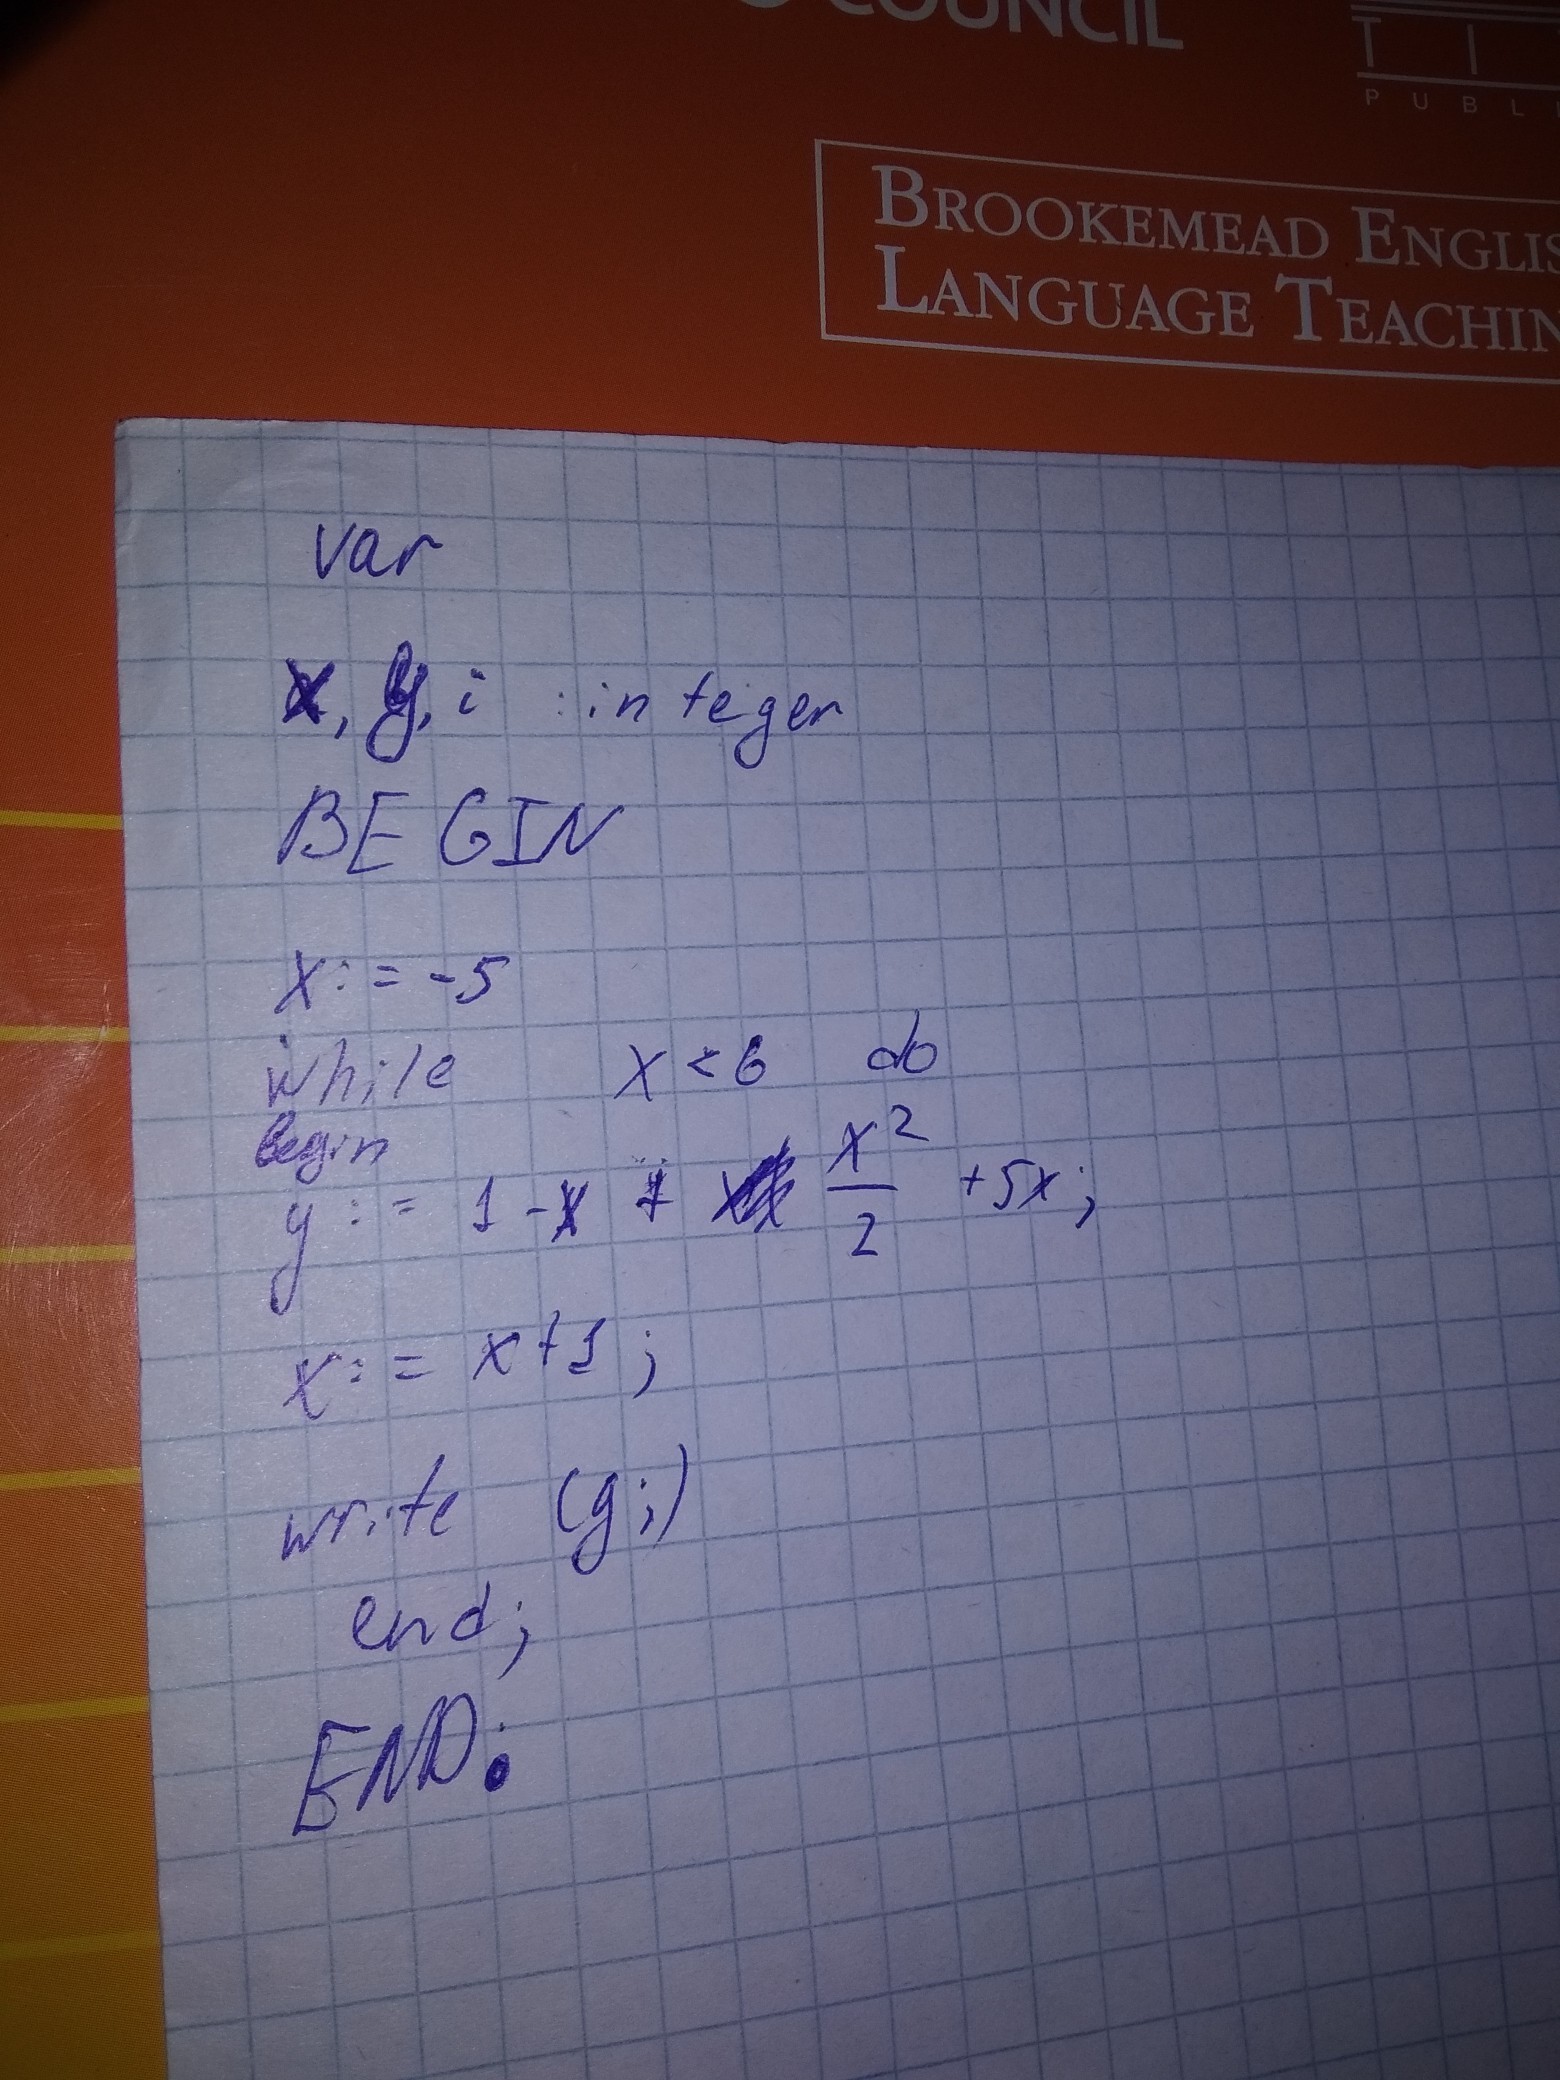 COUNCIL
T I
PUBL
BROOKEMEAD ENGLIS
LANGUAGE TEACHIN
var
x, y, i : integer
BEGIN
x := -5
while x < 6 do
begin
y := 1 - x + x²/2 + 5x;
x := x + 1;
write (y;)
end;
END.